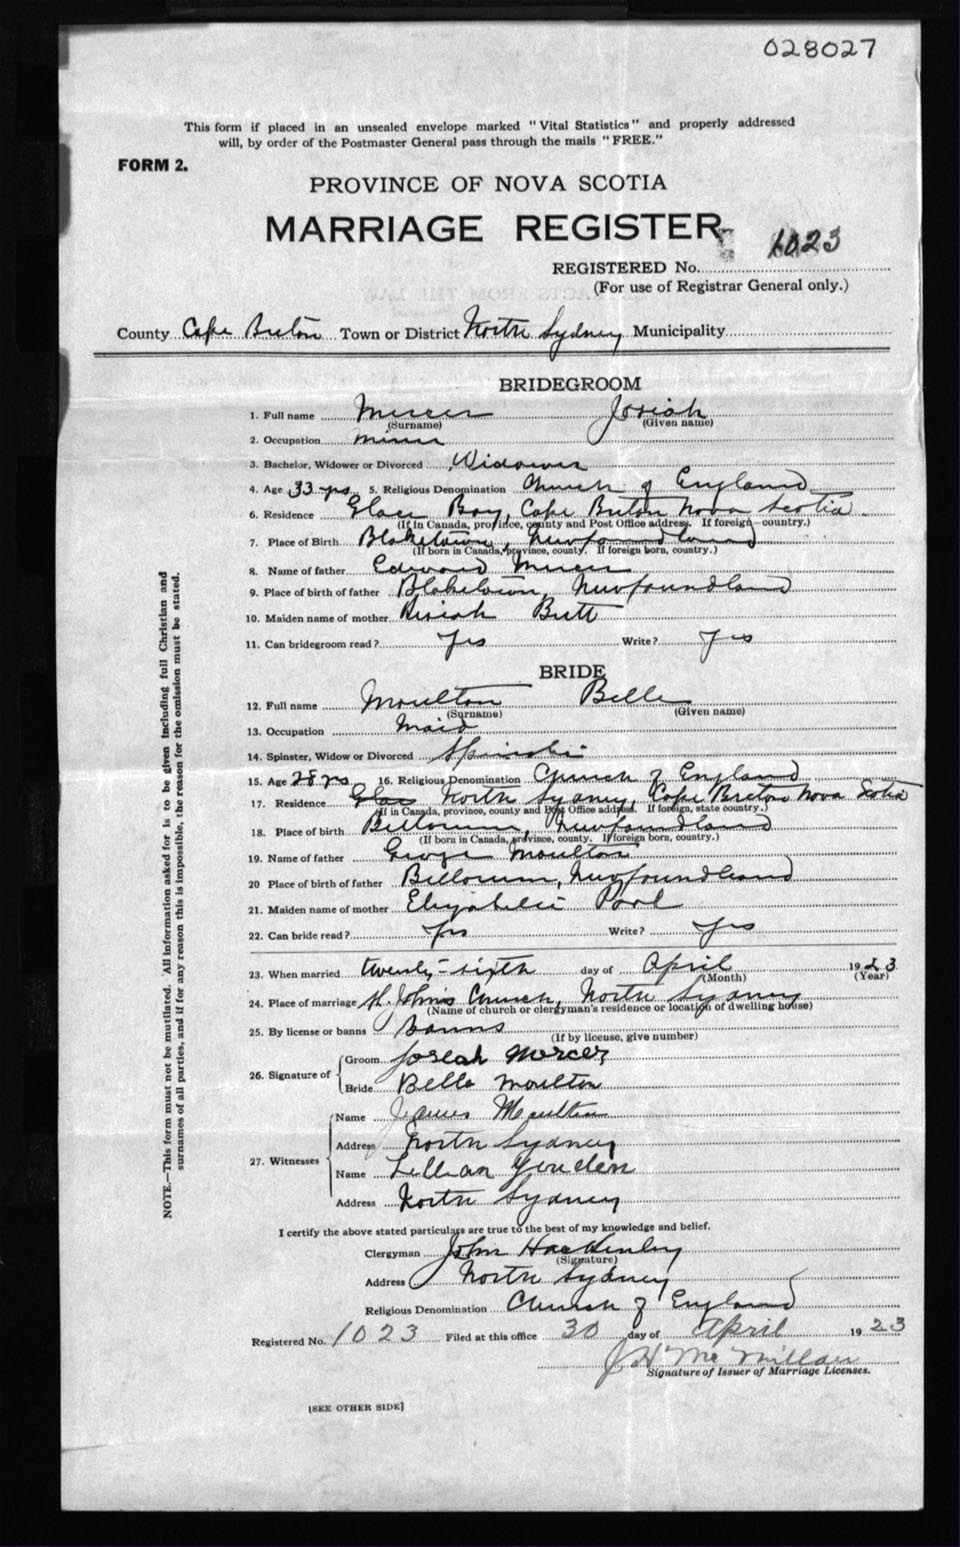 028027
This form if placed in an unsealed envelope marked "Vital Statistics" and properly addressed
will, by order of the Postmaster General pass through the mails "FREE."
FORM 2.
PROVINCE OF NOVA SCOTIA
MARRIAGE REGISTER
1023
REGISTERED No.
(For use of Registrar General only.)
County Cape Breton Town or District North Sydney Municipality
BRIDEGROOM
1. Full name Mercer Josiah
(Surname) (Given name)
2. Occupation Miner
3. Bachelor, Widower or Divorced Widower
4. Age 33 yrs 5. Religious Denomination Church of England
6. Residence Glace Bay, Cape Breton Nova Scotia
(If in Canada, province, county and Post Office address. If foreign country.)
7. Place of Birth Blaketown, Newfoundland
(If born in Canada, province, county. If foreign born, country.)
8. Name of father Edward Mercer
9. Place of birth of father Blaketown, Newfoundland
10. Maiden name of mother Butt
11. Can bridegroom read? Yes Write? Yes
BRIDE
12. Full name Moulton Belle
(Surname) (Given name)
13. Occupation Maid
14. Spinster, Widow or Divorced Spinster
15. Age 28 yrs 16. Religious Denomination Church of England
17. Residence Glac North Sydney, Cape Breton Nova Scotia
(If in Canada, province, county and Post Office address. If foreign, state country.)
18. Place of birth Belloram, Newfoundland
(If born in Canada, province, county. If foreign born, country.)
19. Name of father George Moulton
20 Place of birth of father Belloram, Newfoundland
21. Maiden name of mother Elizabeth Pool
22. Can bride read? Yes Write? Yes
23. When married twenty-sixth day of April 1923
(Month) (Year)
24. Place of marriage St. John's Church, North Sydney
(Name of church or clergyman's residence or location of dwelling house)
25. By license or banns Banns
(If by license, give number)
26. Signature of Groom Joseah Mercer
Bride Belle Moulton
27. Witnesses Name James Moulton
Address North Sydney
Name Lillian Yenden
Address North Sydney
I certify the above stated particulars are true to the best of my knowledge and belief.
Clergyman John
(Signature)
Address North Sydney
Religious Denomination Church of England
Registered No. 1023 Filed at this office 30 day of April 1923
J H McMillan
Signature of Issuer of Marriage Licenses.
[SEE OTHER SIDE]
NOTE.—This form must not be mutilated. All information asked for is to be given including full Christian and
surnames of all parties, and if for any reason this is impossible, the reason for the omission must be stated.